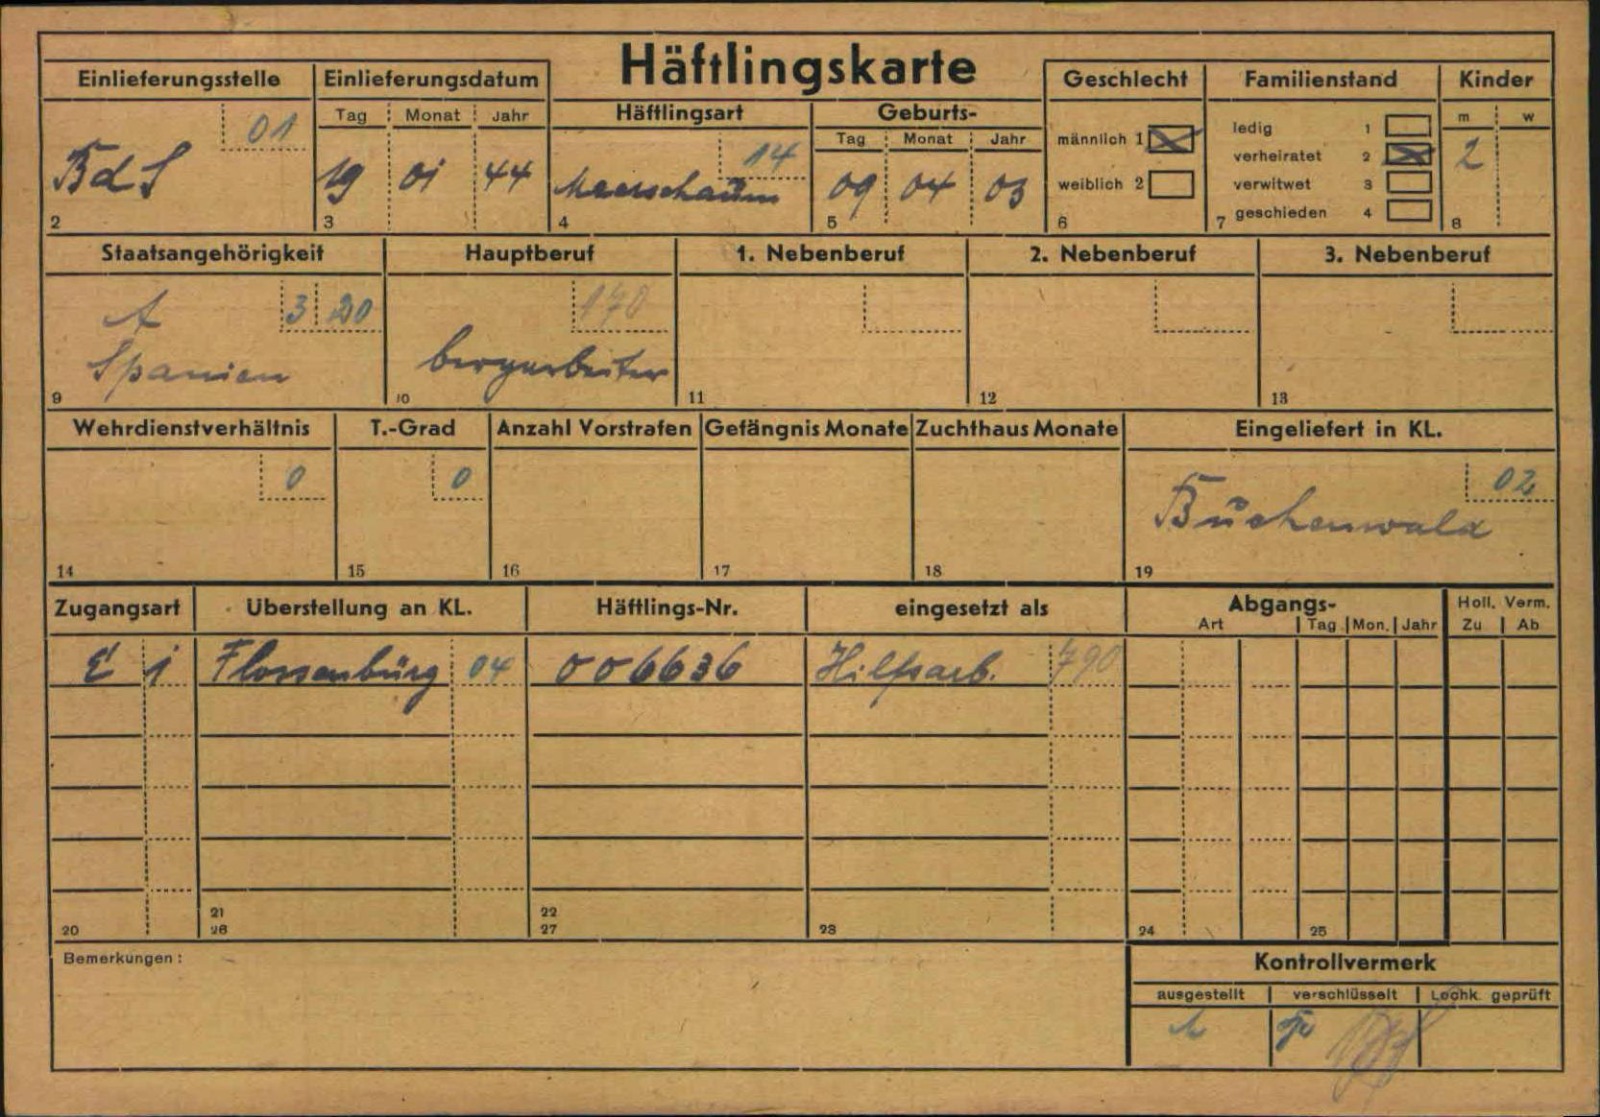 Häftlingskarte
Einlieferungsstelle
01
BdS
2
Einlieferungsdatum
Tag Monat Jahr
19 01 44
3
Häftlingsart
14
Meerschaum
4
Geburts-
Tag Monat Jahr
09 04 03
5
Geschlecht
männlich 1
weiblich 2
6
Familienstand
ledig 1
verheiratet 2
verwitwet 3
geschieden 4
7
Kinder
m w
2
8
Staatsangehörigkeit
3 20
Spanien
9
Hauptberuf
170
bergarbeiter
10
1. Nebenberuf
11
2. Nebenberuf
12
3. Nebenberuf
13
Wehrdienstverhältnis
0
14
T.-Grad
0
15
Anzahl Vorstrafen
16
Gefängnis Monate
17
Zuchthaus Monate
18
Eingeliefert in KL.
02
Buchenwald
19
Zugangsart Überstellung an KL. Häftlings-Nr. eingesetzt als Abgangs- Holl. Verm.
Art Tag Mon. Jahr Zu Ab
E 1 Flossenbürg 04 006636 Hilfsarb. 790
21 22
20 26 27 23 24 25
Bemerkungen:
Kontrollvermerk
ausgestellt verschlüsselt Lochk. geprüft